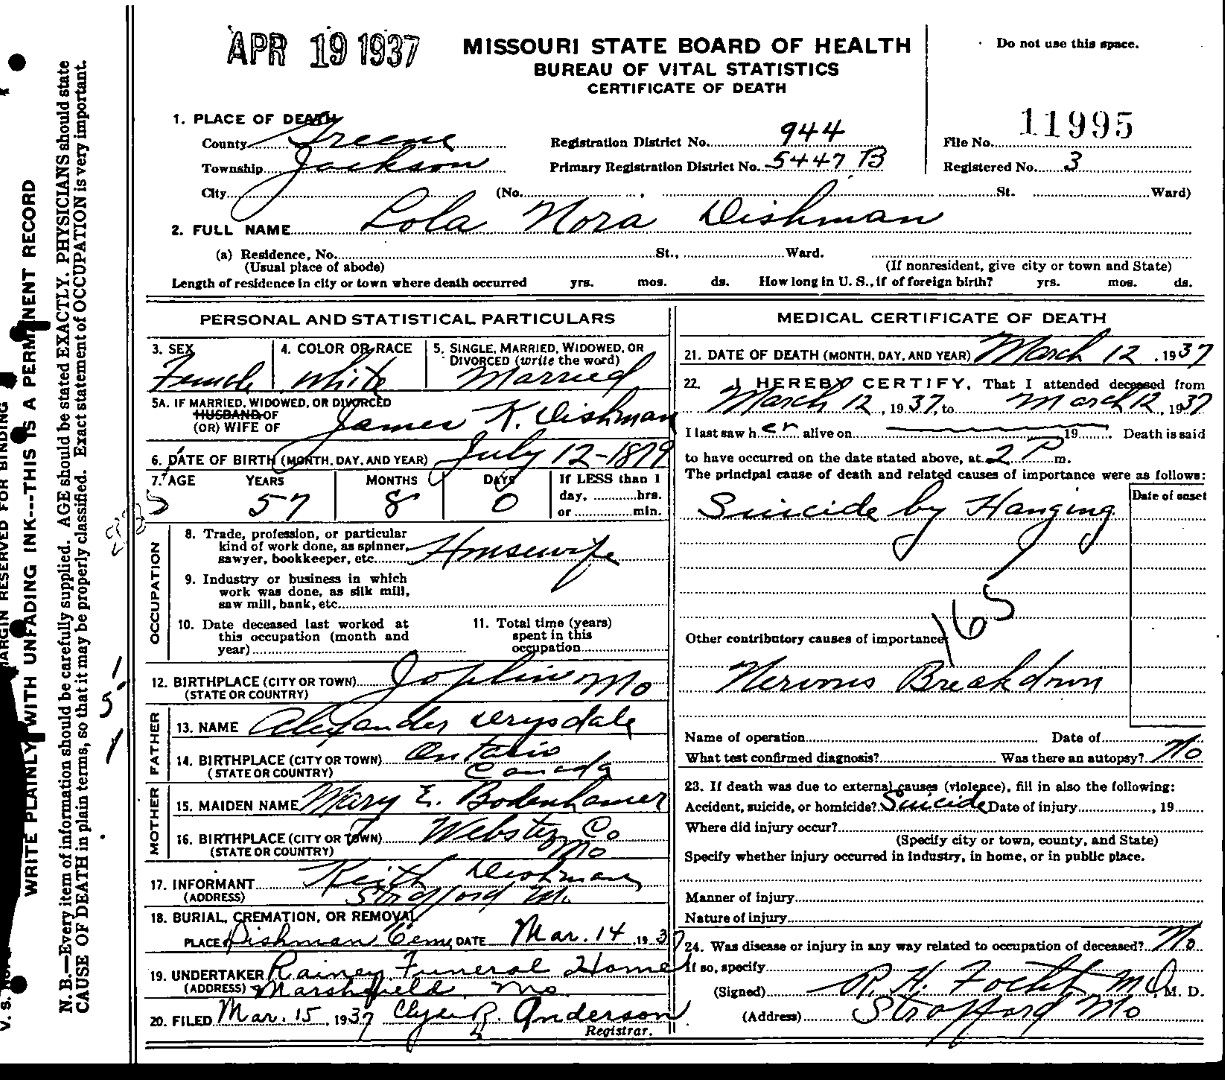 APR 19 1937
MISSOURI STATE BOARD OF HEALTH
BUREAU OF VITAL STATISTICS
CERTIFICATE OF DEATH
Do not use this space.
1. PLACE OF DEATH
County Greene
Township Jackson
City (No. , St. Ward)
Registration District No. 944
Primary Registration District No. 5447 B
File No. 11995
Registered No. 3
2. FULL NAME Lola Nora Dishman
(a) Residence, No. St., Ward.
(Usual place of abode) (If nonresident, give city or town and State)
Length of residence in city or town where death occurred yrs. mos. ds. How long in U. S., if of foreign birth? yrs. mos. ds.
PERSONAL AND STATISTICAL PARTICULARS
3. SEX Female
4. COLOR OR RACE White
5. SINGLE, MARRIED, WIDOWED, OR
DIVORCED (write the word)
Married
5A. IF MARRIED, WIDOWED, OR DIVORCED
HUSBAND OF
(OR) WIFE OF James K. Dishman
6. DATE OF BIRTH (MONTH, DAY, AND YEAR) July 12-1879
7. AGE YEARS MONTHS DAYS If LESS than 1
day, hrs.
or min.
57 8 0
OCCUPATION
8. Trade, profession, or particular
kind of work done, as spinner,
sawyer, bookkeeper, etc. Housewife
9. Industry or business in which
work was done, as silk mill,
saw mill, bank, etc.
10. Date deceased last worked at
this occupation (month and
year)
11. Total time (years)
spent in this
occupation
12. BIRTHPLACE (CITY OR TOWN) Joplin Mo
(STATE OR COUNTRY)
FATHER
13. NAME Alexander Drysdale
14. BIRTHPLACE (CITY OR TOWN) Ontario
(STATE OR COUNTRY) Canada
MOTHER
15. MAIDEN NAME Mary E. Bodenhamer
16. BIRTHPLACE (CITY OR TOWN) Webster Co
(STATE OR COUNTRY) Mo
17. INFORMANT Keith Dishman
(ADDRESS) Strafford Mo.
18. BURIAL, CREMATION, OR REMOVAL
PLACE Dishman Cem. DATE Mar. 14, 1937
19. UNDERTAKER Rainey Funeral Home
(ADDRESS) Marshfield, Mo.
20. FILED Mar. 15, 1937 Clyde R. Anderson
Registrar.
MEDICAL CERTIFICATE OF DEATH
21. DATE OF DEATH (MONTH, DAY, AND YEAR) March 12, 1937
22. I HEREBY CERTIFY, That I attended deceased from
March 12, 1937, to March 12, 1937
I last saw her alive on 19 Death is said
to have occurred on the date stated above, at 2 P m.
The principal cause of death and related causes of importance were as follows:
Date of onset
Suicide by Hanging
165
Other contributory causes of importance:
Nervous Breakdown
Name of operation Date of
What test confirmed diagnosis? Was there an autopsy? No
23. If death was due to external causes (violence), fill in also the following:
Accident, suicide, or homicide? Suicide Date of injury , 19
Where did injury occur?
(Specify city or town, county, and State)
Specify whether injury occurred in industry, in home, or in public place.
Manner of injury
Nature of injury
24. Was disease or injury in any way related to occupation of deceased? No
If so, specify
(Signed) R. H. Focht M.D., M. D.
(Address) Strafford Mo
MARGIN RESERVED FOR BINDING
WRITE PLAINLY, WITH UNFADING INK---THIS IS A PERMANENT RECORD
N. B.—Every item of information should be carefully supplied. AGE should be stated EXACTLY. PHYSICIANS should state
CAUSE OF DEATH in plain terms, so that it may be properly classified. Exact statement of OCCUPATION is very important.